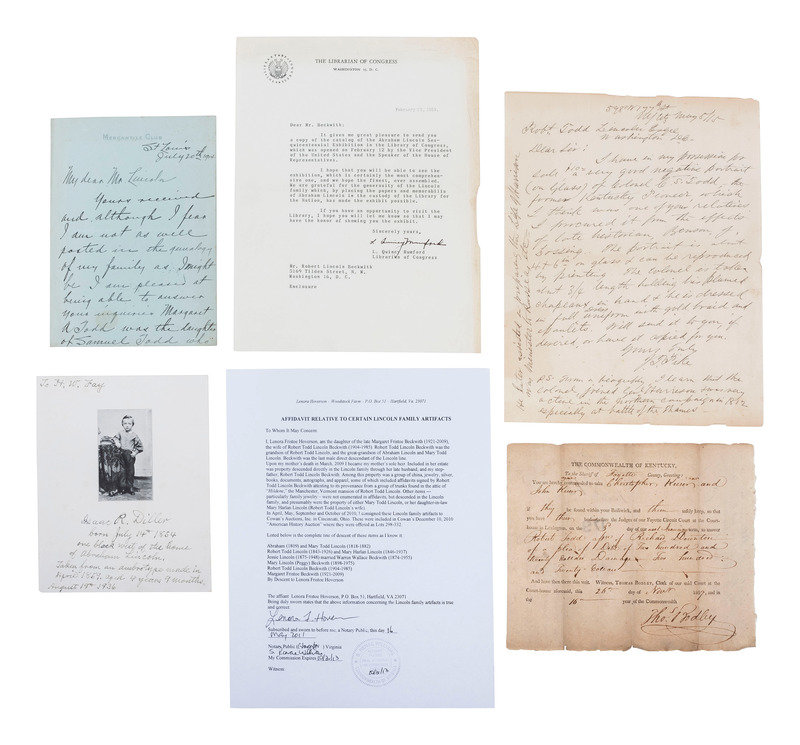 MERCANTILE CLUB
St Louis
July 20th
My dear Mr Lincoln
Yours received
and, although I fear
I am not as well
posted in the genealogy
of my family as I might
be I am pleased at
being able to answer
your inquiries Margaret
A Todd was the daughter
of Samuel Todd who
THE LIBRARIAN OF CONGRESS
WASHINGTON 25, D. C.
February
Dear Mr. Beckwith:
It gives me great pleasure to send you
a copy of the catalog of the Abraham Lincoln Ses-
quicentennial Exhibition in the Library of Congress,
which was opened on February 12 by the Vice President
of the United States and the Speaker of the House of
Representatives.
I hope that you will be able to see the
exhibition, which is certainly the most comprehen-
sive one, and we hope the finest, ever assembled.
We are grateful for the generosity of the Lincoln
family which, by placing the papers and memorabilia
for Abraham Lincoln in the custody of the Library for
the Nation, has made the exhibit possible.
If you have an opportunity to visit the
Library, I hope you will let me know so that I may
have the honor of showing you the exhibit.
Sincerely yours,
L Quincy Mumford
L. Quincy Mumford
Librarian of Congress
Mr. Robert Lincoln Beckwith
Tilden Street, N. W.
Washington 16, D. C.
Enclosure
Robt Todd Lincoln
Washington
Dear Sir:
I have in my possession
very good negative
(on glass) of Colonel C. S. Todd, the
former Kentucky Pioneer which
I think was one of your relatives
I procured it from the effects
of late historian Benson J.
Lossing. The portrait is about
4 x 6 in on glass & can be reproduced
by printing. The Colonel is taken
about 3/4 length holding his plumed
chapeaux in hand & he is dressed
in full uniform with gold braid and
epaulets. Will send it to you, if
desired, or have it copied for you.
Yours truly
P.S. From a biography I learn that the
Colonel joined Gen Harrison
active in the Northern campaign in 1812
especially at battle of the Thames
To H. W. Fay
Isaac R. Diller
born July 14th 1854
one block west of the home
of Abraham Lincoln,
Taken from an ambrotype made in
April 1859, aged 4 years 9 months.
August 19th 1936
Lenora Hoverson - Woodstock Farm - P.O. Box 51 - Hartfield, Va. 23071
AFFIDAVIT RELATIVE TO CERTAIN LINCOLN FAMILY ARTIFACTS
To Whom It May Concern
I, Lenora Fristoe Hoverson, am the daughter of the late Margaret Fristoe Beckwith (1921-2009),
the wife of Robert Todd Lincoln Beckwith (1904-1985). Robert Todd Lincoln Beckwith was the
grandson of Robert Todd Lincoln, and the great-grandson of Abraham Lincoln and Mary Todd
Lincoln. Beckwith was the last male direct descendant of the Lincoln line.
Upon my mother's death in March, 2009 I became my mother's sole heir. Included in her estate
was property descended directly in the Lincoln family through her late husband, and my step-
father, Robert Lincoln Beckwith. Among this property was a group of china, jewelry, silver,
books, documents, autographs, and apparel, some of which included affidavits signed by Robert
Todd Lincoln Beckwith attesting to its provenance from a group of trunks found in the attic of
"Hildene", the Manchester, Vermont mansion of Robert Todd Lincoln. Other items --
particularly family jewelry -- were not enumerated in affidavits, but descended in the Lincoln
family, and presumably were the property of either Mary Todd Lincoln, or her daughter-in-law
Mary Harlan Lincoln (Robert Lincoln's wife).
In April, May, September and October of 2010, I consigned these Lincoln family artifacts to
Cowan's Auctions, Inc. in Cincinnati, Ohio. These were included in Cowan's December 10, 2010
"American History Auction" where they were offered as Lots 298-332.
Listed below is the complete line of descent of these items as I know it
Abraham (1819) and Mary Todd (1818-1882)
Robert Todd Lincoln (1843-1926) and Mary Harlan Lincoln (1846-1937)
Jessie Lincoln (1875-1948) married Warren Wallace Beckwith (1874-1955)
Mary Lincoln (Peggy) Beckwith (1898-1975)
Robert Lincoln Beckwith (1904-1985)
Margaret Fristoe Beckwith (1921-2009)
By Descent to Lenora Fristoe Hoverson
The affiant Lenora Fristoe Hoverson, P.O. Box 51, Hartfield, VA 23071
Being duly sworn states that the above information concerning the Lincoln family artifacts is true
and correct
Subscribed and sworn to before me, a Notary Public, this day 16
May 2011
Notary Public ( ) Virginia
My Commission Expires
Witness
THE COMMONWEALTH OF KENTUCKY,
To the Sheriff of Fayette County, Greeting:
You are hereby commanded to take Christopher Keiser and
John Keiser
if they be found within your Bailiwick, and them safely keep, so that
you have them before the Judges of our Fayette Circuit Court at the Court-
house in Lexington, on the day of our next Term, to answer
Robert Todd
of a plea of Debt of two hundred and
twenty Dollars Damage two hundred
and twenty Dollars
And have then there this writ. Witness, THOMAS BODLEY, Clerk of our said Court at the
Court-house aforesaid, this 26 day of Novr 1807, and in
the 16 year of the Commonwealth
Tho. Bodley